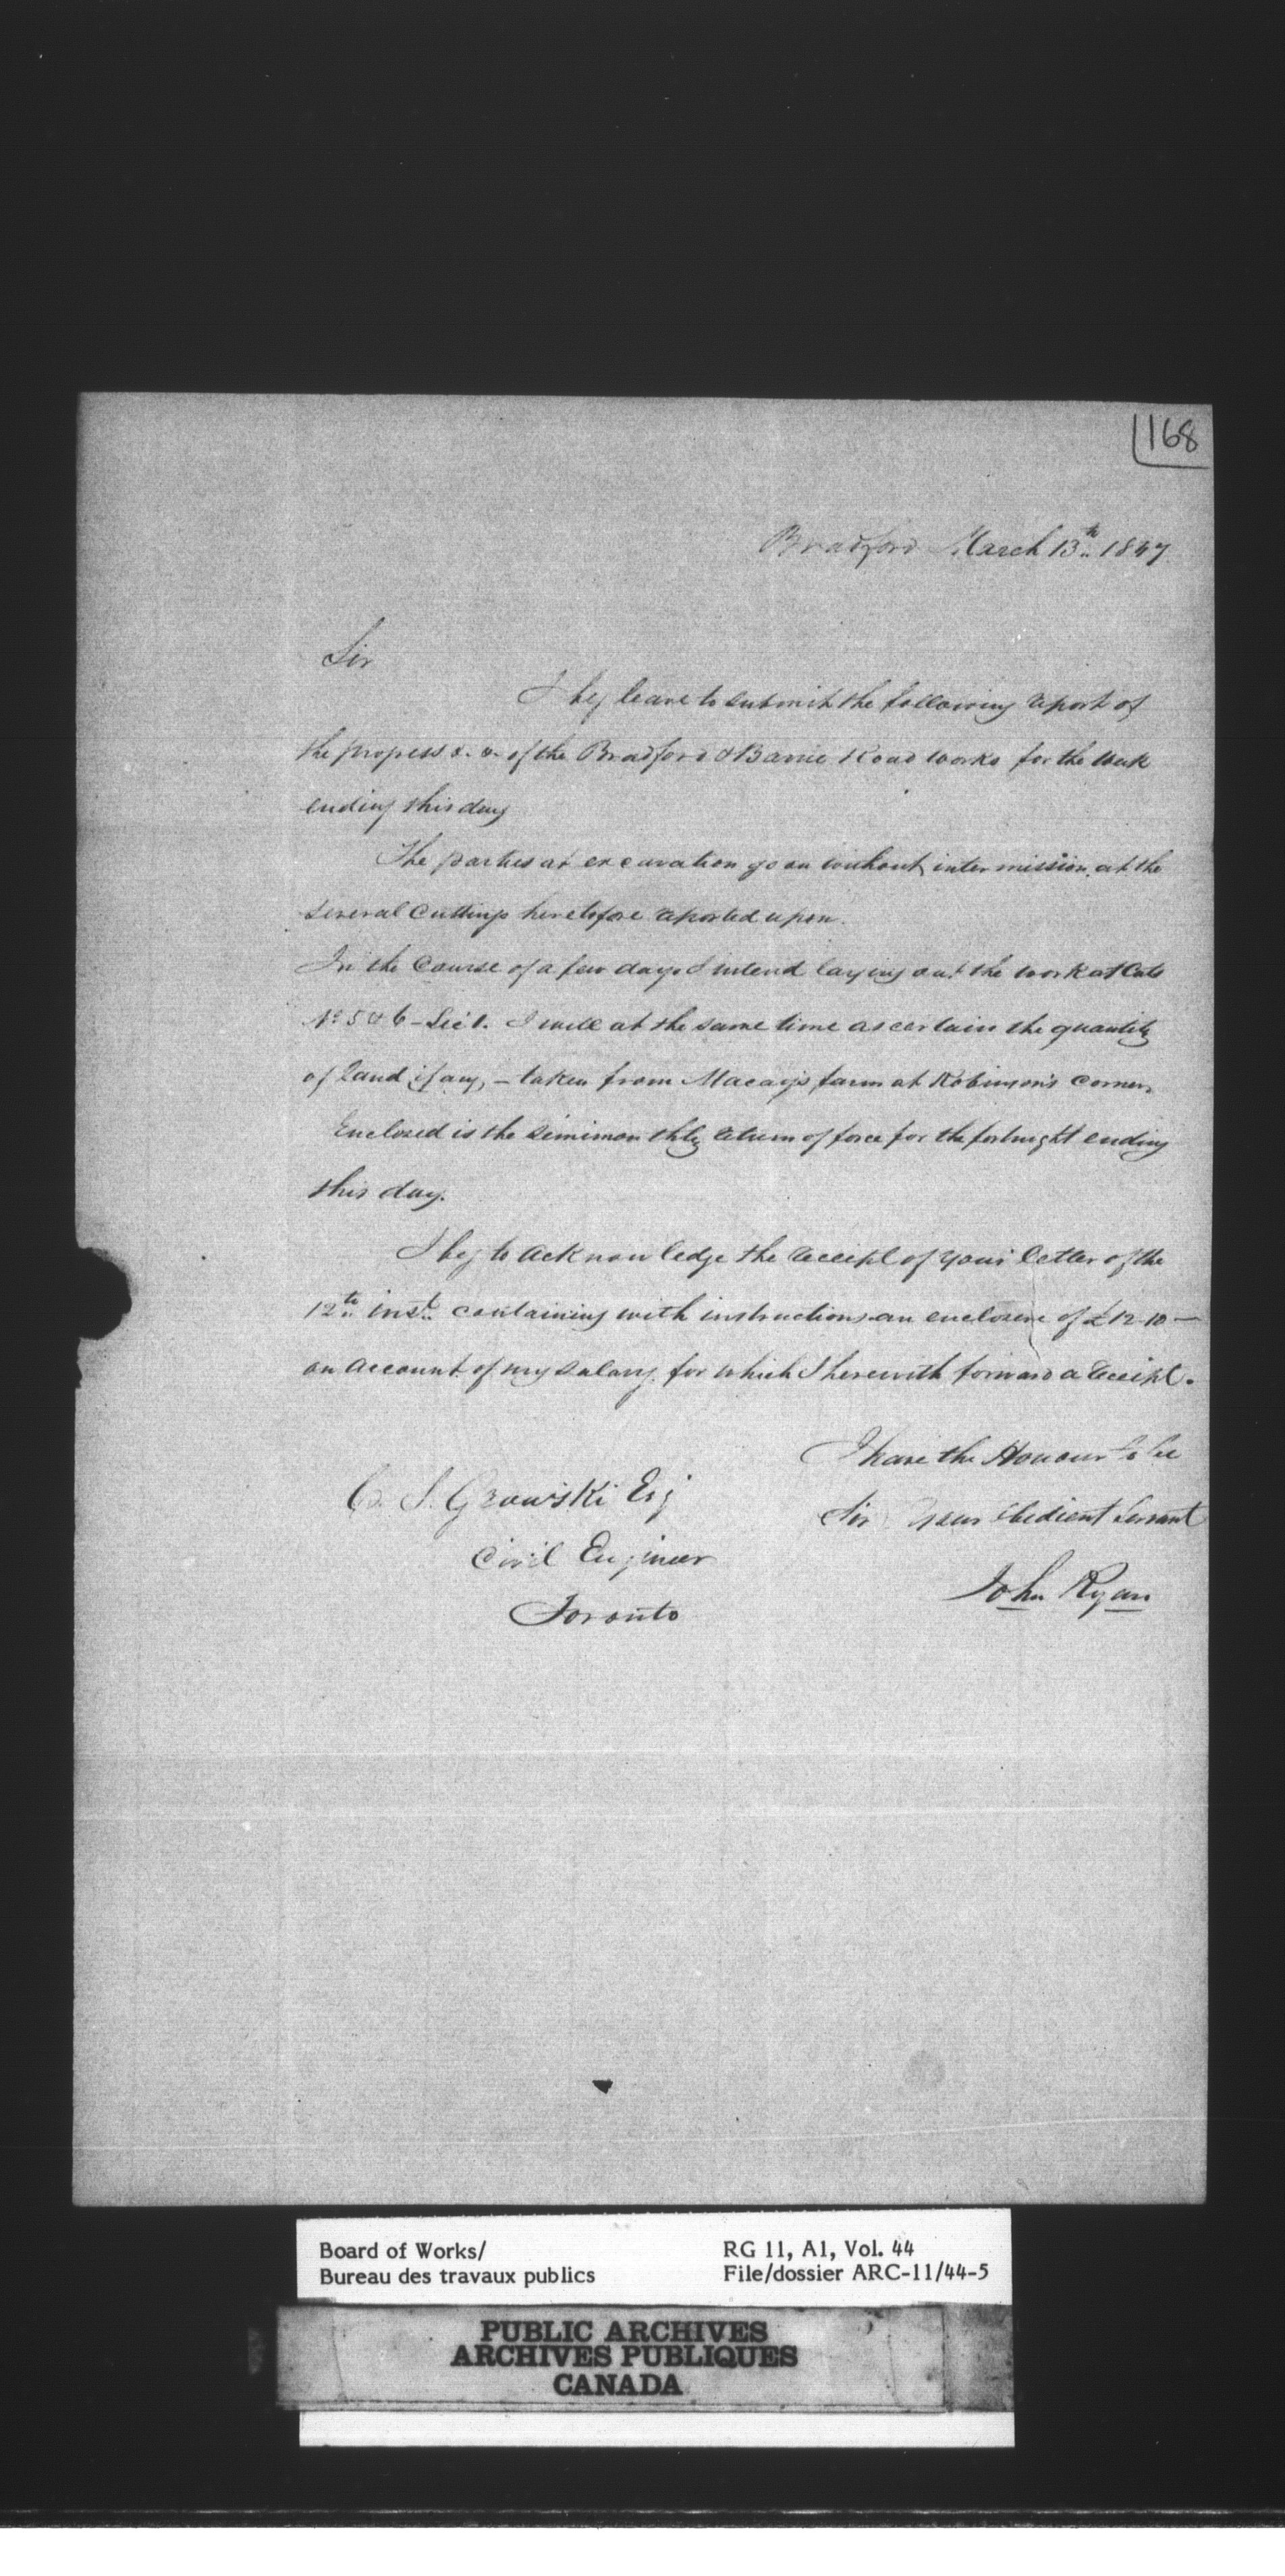 168
Bradford March 13th 1847
Sir
I beg leave to submit the following report of
the progress &. &. of the Bradford & Barrie Road works for the week
ending this day
The parties at excavation go on without intermission at the
several Cuttings heretofore reported upon.
In the Course of a few days I intend laying out the work at Cuts
No 5 & 6 - Sec 1. I will at the same time ascertain the quantity
of land if any, - taken from Macay's farm at Robinson's corner.
Enclosed is the Semimonthly return of force for the fortnight ending
this day.
I beg to acknowledge the receipt of your letter of the
12th inst containing with instructions an enclosure of £12.10 -
on account of my salary for which I herewith forward a receipt.
I have the Honour to be
Sir Your obedient Servant
John Ryan
C. S. Gzowski Esq
Civil Engineer
Toronto
Board of Works/
Bureau des travaux publics
RG 11, A1, Vol. 44
File/dossier ARC-11/44-5
PUBLIC ARCHIVES
ARCHIVES PUBLIQUES
CANADA